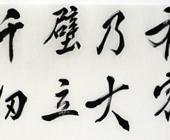 有容
乃大
壁立
千仞